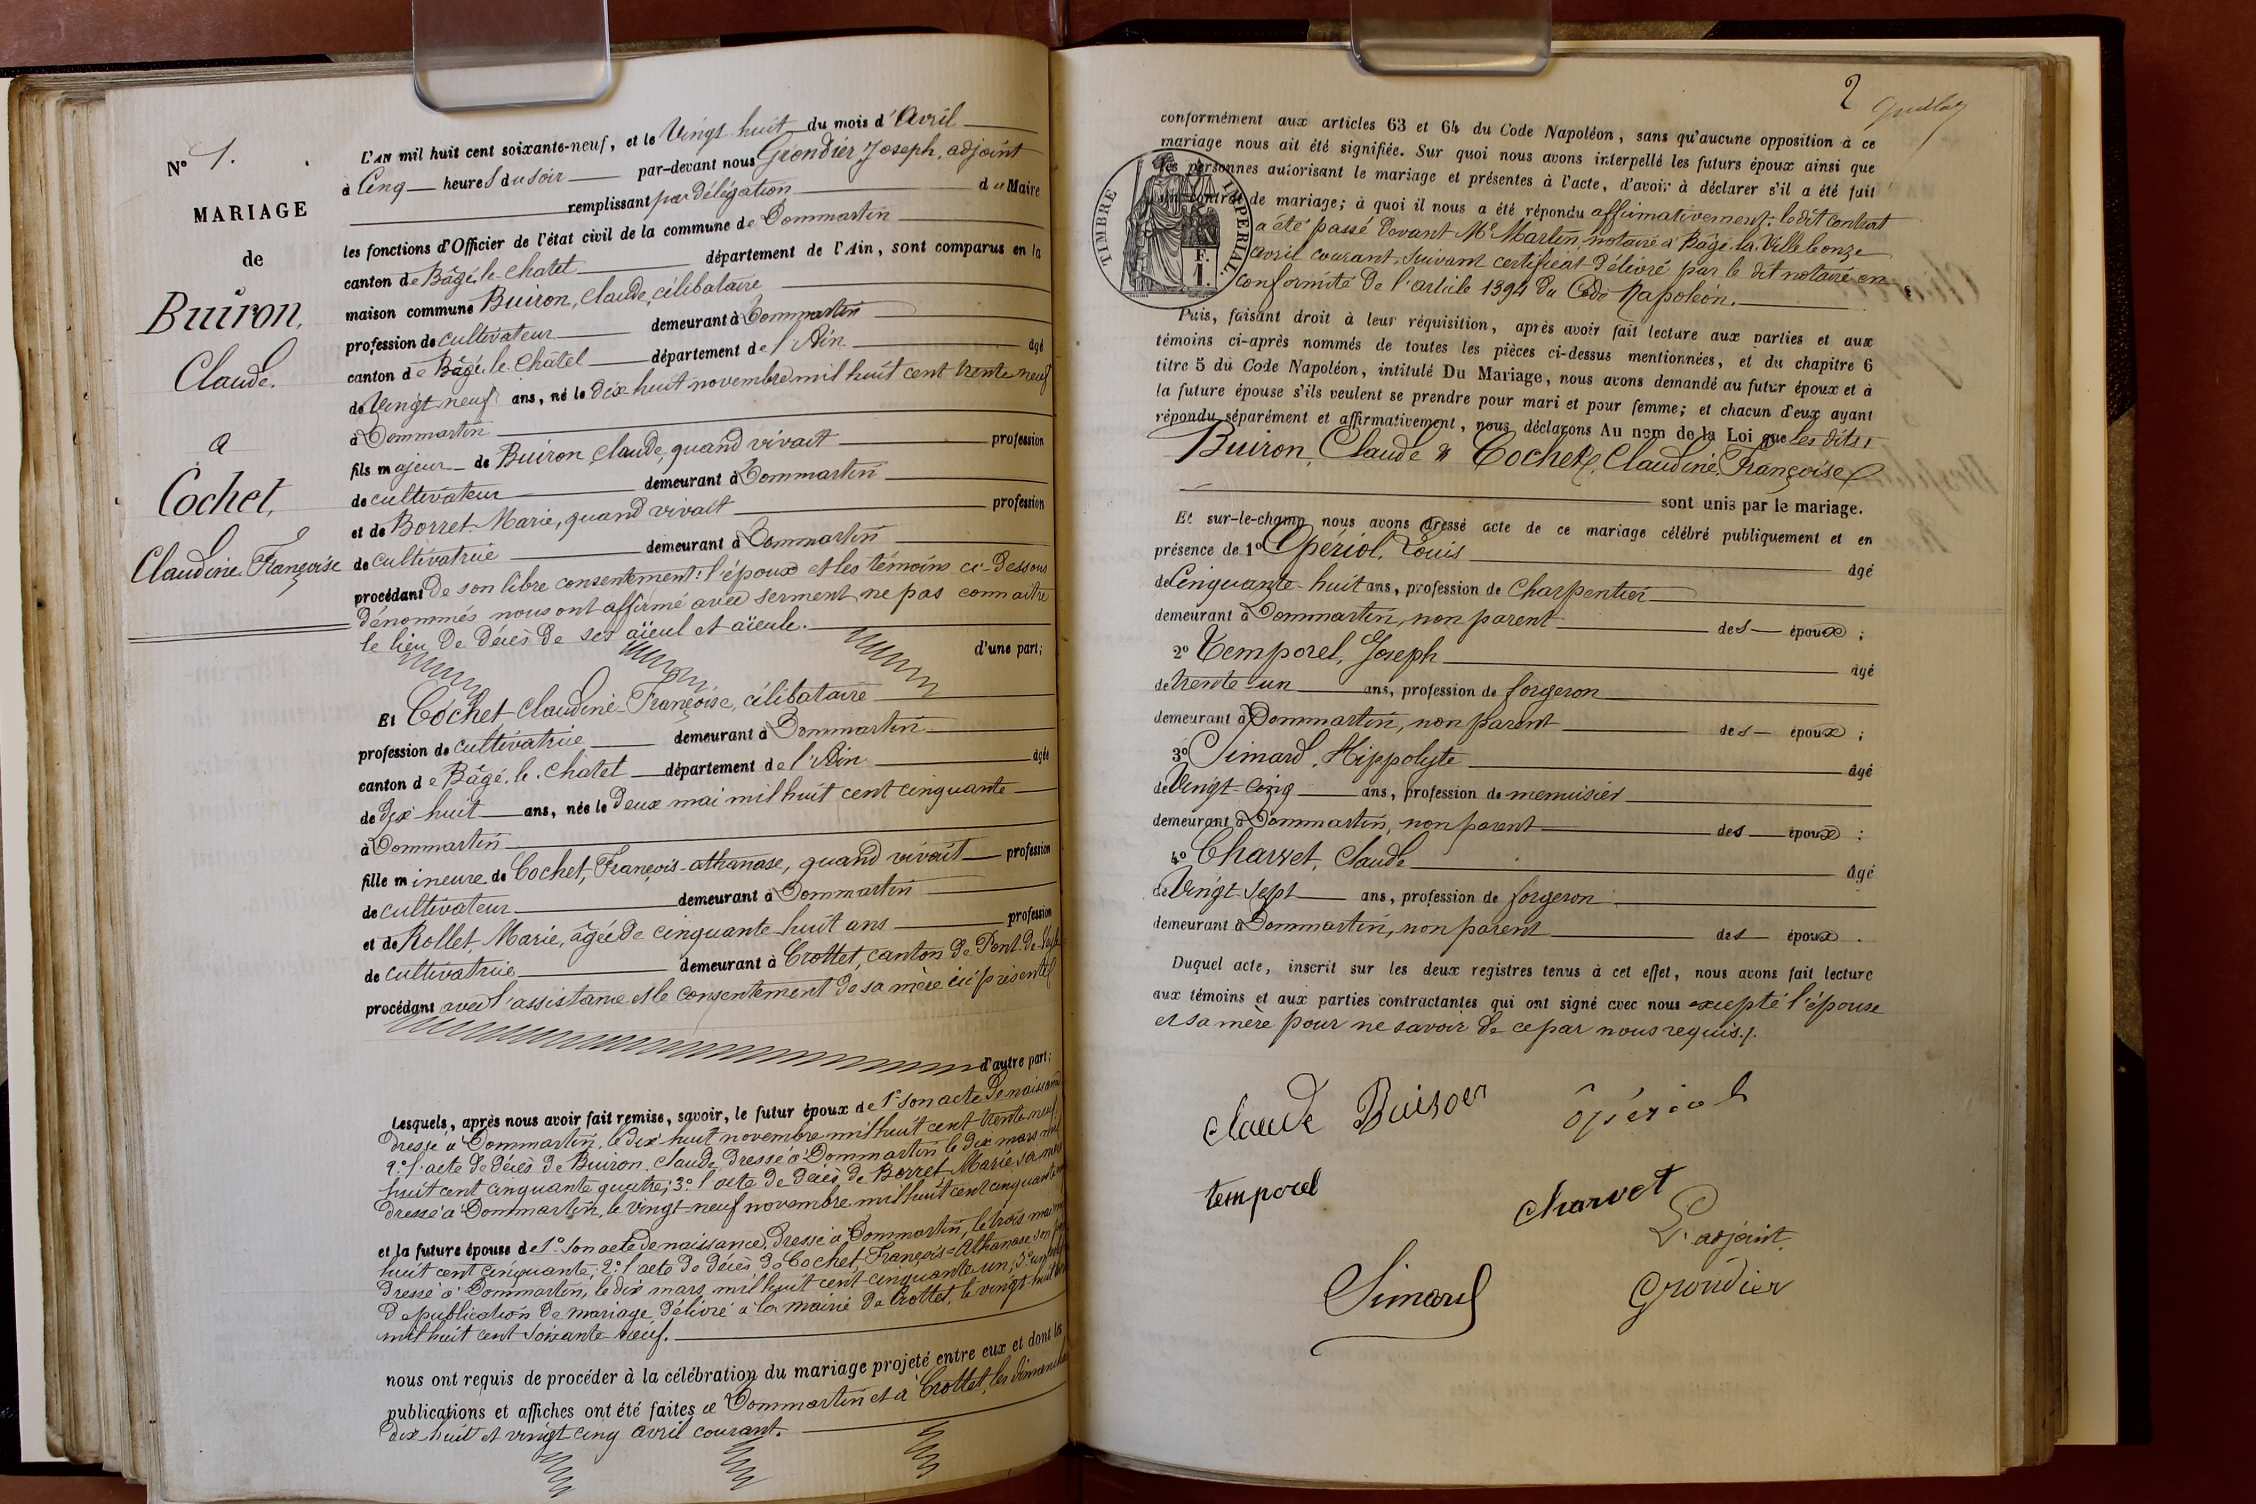 N° 1.
MARIAGE
de
Buiron,
Claude.
à
Cochet,
Claudine Françoise
L'AN mil huit cent soixante-neuf, et le Vingt huit du mois d'Avril
à Cinq heures du soir par-devant nous Grondier Joseph, adjoint
remplissant par délégation du Maire
les fonctions d'Officier de l'état civil de la commune de Dommartin
canton de Bâgé-le-Chatel département de l'Ain, sont comparus en la
maison commune Buiron, Claude, célibataire
profession de cultivateur demeurant à Dommartin
canton de Bâgé-le-Châtel département de l'Ain âgé
de Vingt neuf ans, né le dix huit novembre mil huit cent trente neuf
à Dommartin
fils majeur de Buiron Claude, quand vivait profession
de cultivateur demeurant à Dommartin
et de Borret Marie, quand vivait profession
de cultivatrice demeurant à Dommartin
procédant de son libre consentement: l'époux et les témoins ci-dessous
dénommés nous ont affirmé avec serment ne pas connaître
le lieu de décès de ses aïeul et aïeule.
d'une part;
Et Cochet Claudine-Françoise, célibataire
profession de cultivatrice demeurant à Dommartin
canton de Bâgé-le-Chatel département de l'Ain âgée
de dix-huit ans, née le deux mai mil huit cent cinquante
à Dommartin
fille mineure de Cochet, François-athanase, quand vivait profession
de cultivateur demeurant à Dommartin
et de Rollet, Marie, âgée de cinquante-huit ans profession
de cultivatrice demeurant à Crottet, canton de Pont-de-Veyle
procédant avec l'assistance et le consentement de sa mère ici présente
d'autre part;
Lesquels, après nous avoir fait remise, savoir, le futur époux de 1° son acte de naissance
dressé à Dommartin, le dix huit novembre mil huit cent trente neuf;
2° l'acte de décès de Buiron, Claude, dressé à Dommartin le dix mars mil
huit cent cinquante quatre; 3° l'acte de décès de Borret Marie sa mère
dressé à Dommartin, le vingt-neuf novembre mil huit cent cinquante
et la future épouse de 1° son acte de naissance, dressé à Dommartin, le trois mai mil
huit cent cinquante; 2° l'acte de décès de Cochet, François-Athanase son père
dressé à Dommartin, le dix mars mil huit cent cinquante un; 3° un
de publication de mariage, délivré à la mairie de Crottet, le vingt huit
mil huit cent soixante neuf.
nous ont requis de procéder à la célébration du mariage projeté entre eux et dont les
publications et affiches ont été faites à Dommartin et à Crottet, les dimanches
dix-huit et vingt cinq avril courant.
2
conformément aux articles 63 et 64 du Code Napoléon, sans qu'aucune opposition à ce
mariage nous ait été signifiée. Sur quoi nous avons interpellé les futurs époux ainsi que
les personnes autorisant le mariage et présentes à l'acte, d'avoir à déclarer s'il a été fait
un contrat de mariage; à quoi il nous a été répondu affirmativement: le dit contrat
a été passé devant Me Martin, notaire à Bâgé-la-Ville le onze
avril courant, suivant certificat délivré par le dit notaire en
conformité de l'article 1394 du Code Napoléon.
TIMBRE IMPÉRIAL
F.
1.
Puis, faisant droit à leur réquisition, après avoir fait lecture aux parties et aux
témoins ci-après nommés de toutes les pièces ci-dessus mentionnées, et du chapitre 6
titre 5 du Code Napoléon, intitulé Du Mariage, nous avons demandé au futur époux et à
la future épouse s'ils veulent se prendre pour mari et pour femme; et chacun d'eux ayant
répondu séparément et affirmativement, nous déclarons Au nom de la Loi que les dits
Buiron, Claude & Cochet, Claudine, Françoise
sont unis par le mariage.
Et sur-le-champ nous avons dressé acte de ce mariage célébré publiquement et en
présence de 1° Opériol, Louis âgé
de Cinquante-huit ans, profession de Charpentier
demeurant à Dommartin, non parent des époux;
2° Temporel, Joseph âgé
de trente-un ans, profession de forgeron
demeurant à Dommartin, non parent des époux;
3° Simard, Hippolyte âgé
de Vingt-cinq ans, profession de menuisier
demeurant à Dommartin, non parent des époux:
4° Charvet, Claude âgé
de Vingt-sept ans, profession de forgeron
demeurant à Dommartin, non parent des époux.
Duquel acte, inscrit sur les deux registres tenus à cet effet, nous avons fait lecture
aux témoins et aux parties contractantes qui ont signé avec nous excepté l'épouse
et sa mère pour ne savoir de ce par nous requis./.
Claude Buiron opériol
temporel charvet
L'adjoint
Simard Grondier